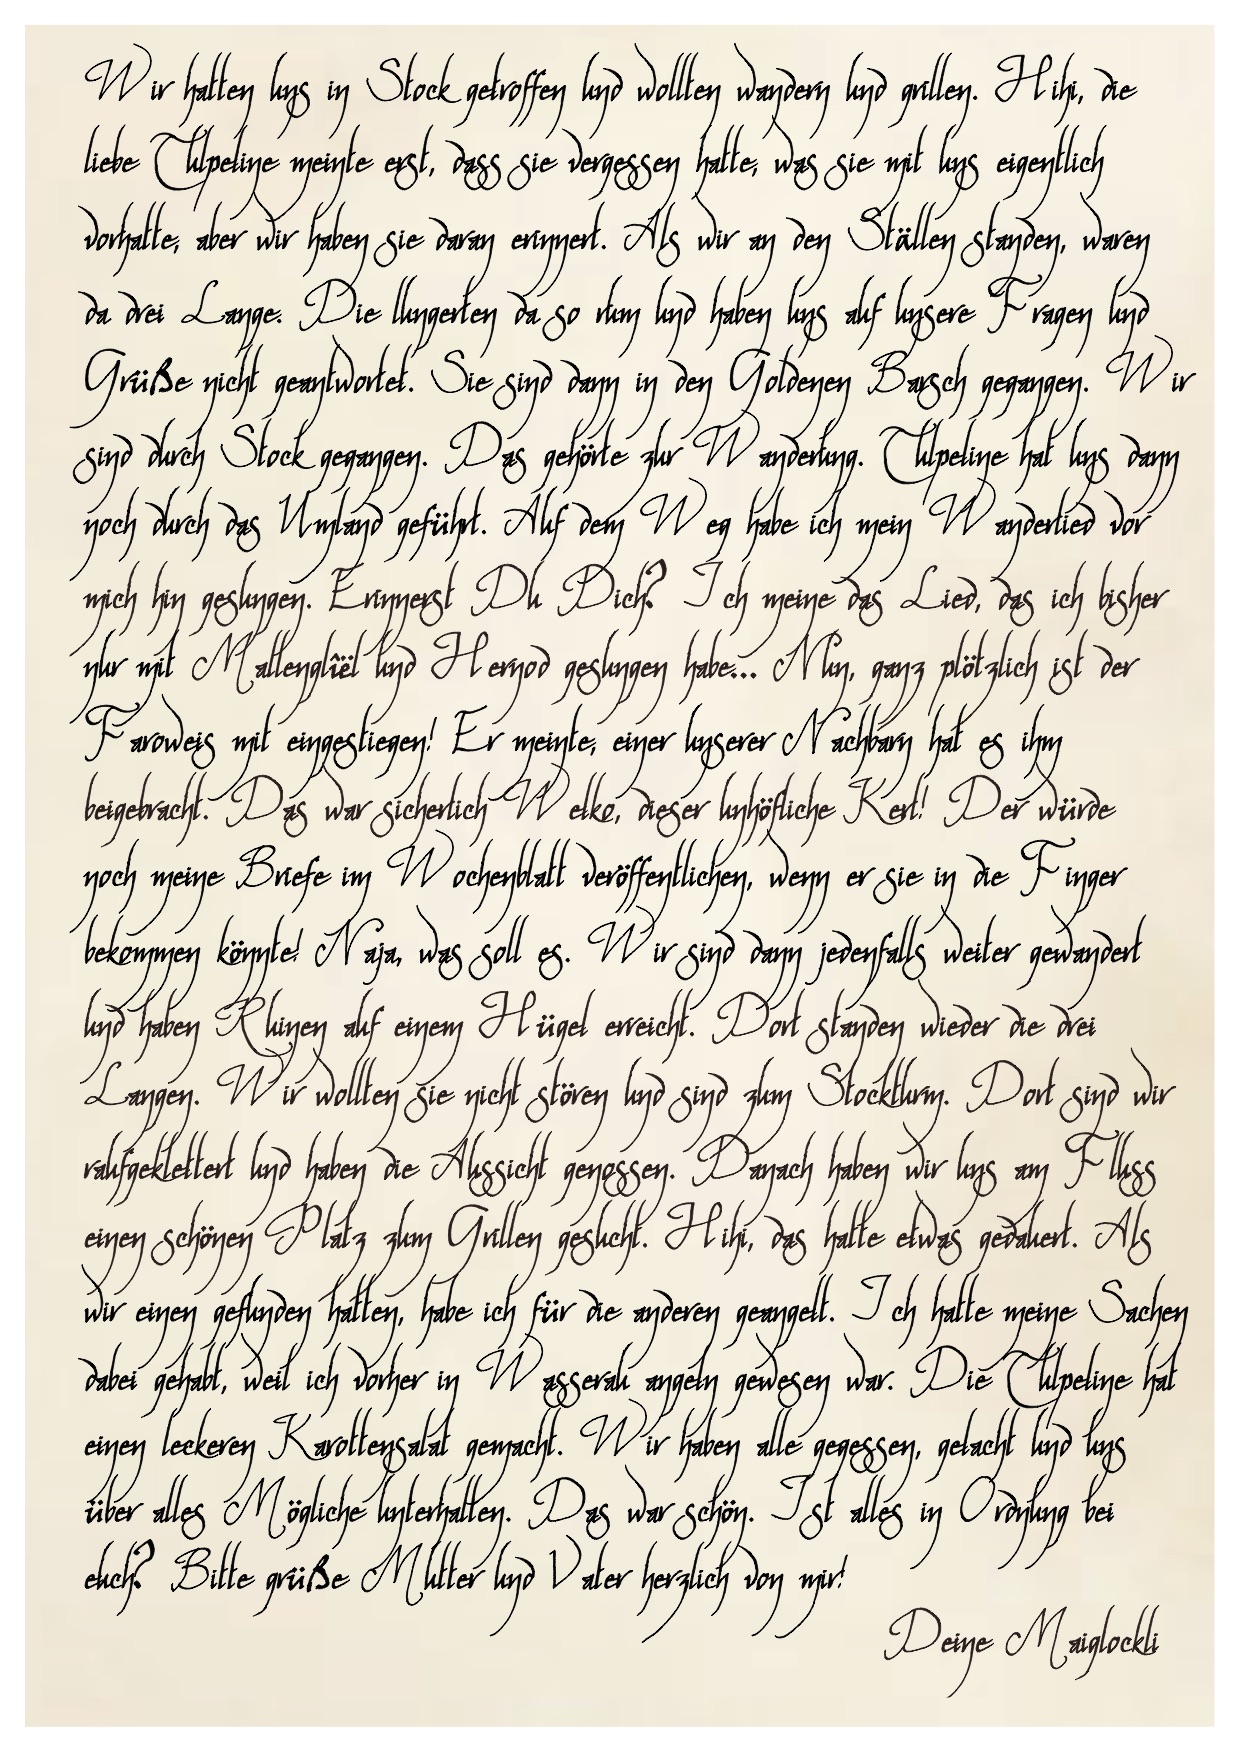 Wir hatten uns in Stock getroffen und wollten wandern und grillen. Hihi, die
liebe Tulpeline meinte erst, dass sie vergessen hatte, was sie mit uns eigentlich
vorhatte, aber wir haben sie daran erinnert. Als wir an den Ställen standen, waren
da drei Lange. Die lungerten da so rum und haben uns auf unsere Fragen und
Grüße nicht geantwortet. Sie sind dann in den Goldenen Barsch gegangen. Wir
sind durch Stock gegangen. Das gehörte zur Wanderung. Tulpeline hat uns dann
noch durch das Umland geführt. Auf dem Weg habe ich mein Wanderlied vor
mich hin gesungen. Erinnerst Du Dich? Ich meine das Lied, das ich bisher
nur mit Mallenglîël und Hernod gesungen habe... Nun, ganz plötzlich ist der
Faroweis mit eingestiegen! Er meinte, einer unserer Nachbarn hat es ihm
beigebracht. Das war sicherlich Welko, dieser unhöfliche Kerl! Der würde
noch meine Briefe im Wochenblatt veröffentlichen, wenn er sie in die Finger
bekommen könnte! Naja, was soll es. Wir sind dann jedenfalls weiter gewandert
und haben Ruinen auf einem Hügel erreicht. Dort standen wieder die drei
Langen. Wir wollten sie nicht stören und sind zum Stockturm. Dort sind wir
raufgeklettert und haben die Aussicht genossen. Danach haben wir uns am Fluss
einen schönen Platz zum Grillen gesucht. Hihi, das hatte etwas gedauert. Als
wir einen gefunden hatten, habe ich für die anderen geangelt. Ich hatte meine Sachen
dabei gehabt, weil ich vorher in Wasserau angeln gewesen war. Die Tulpeline hat
einen leckeren Karottensalat gemacht. Wir haben alle gegessen, gelacht und uns
über alles Mögliche unterhalten. Das war schön. Ist alles in Ordnung bei
euch? Bitte grüße Mutter und Vater herzlich von mir!
Deine Maiglöckli